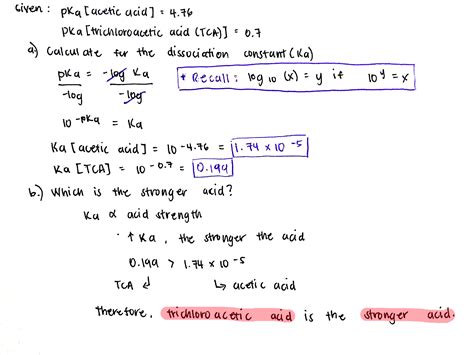 Given: pKa [acetic acid] = 4.76
pKa [trichloroacetic acid (TCA)] = 0.7
a) Calculate for the dissociation constant (Ka)
pKa = -log Ka
-log -log
* Recall: log 10 (x) = y if 10^y = x
10^-pKa = Ka
Ka [acetic acid] = 10^-4.76 = 1.74 x 10^-5
Ka [TCA] = 10^-0.7 = 0.199
b.) Which is the stronger acid?
Ka ∝ acid strength
· ↑ Ka, the stronger the acid
0.199 > 1.74 x 10^-5
TCA ↲ ↳ acetic acid
therefore, trichloroacetic acid is the stronger acid.